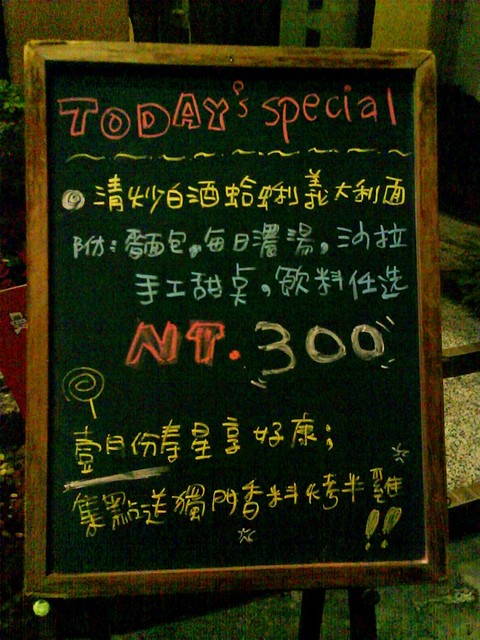 TODAY's special
清炒白酒蛤蜊義大利面
附:麵包,每日濃湯,沙拉
手工甜桌,飲料任选
NT.300
壹月份壽星享好康;
集點送獨門香料烤半雞!!